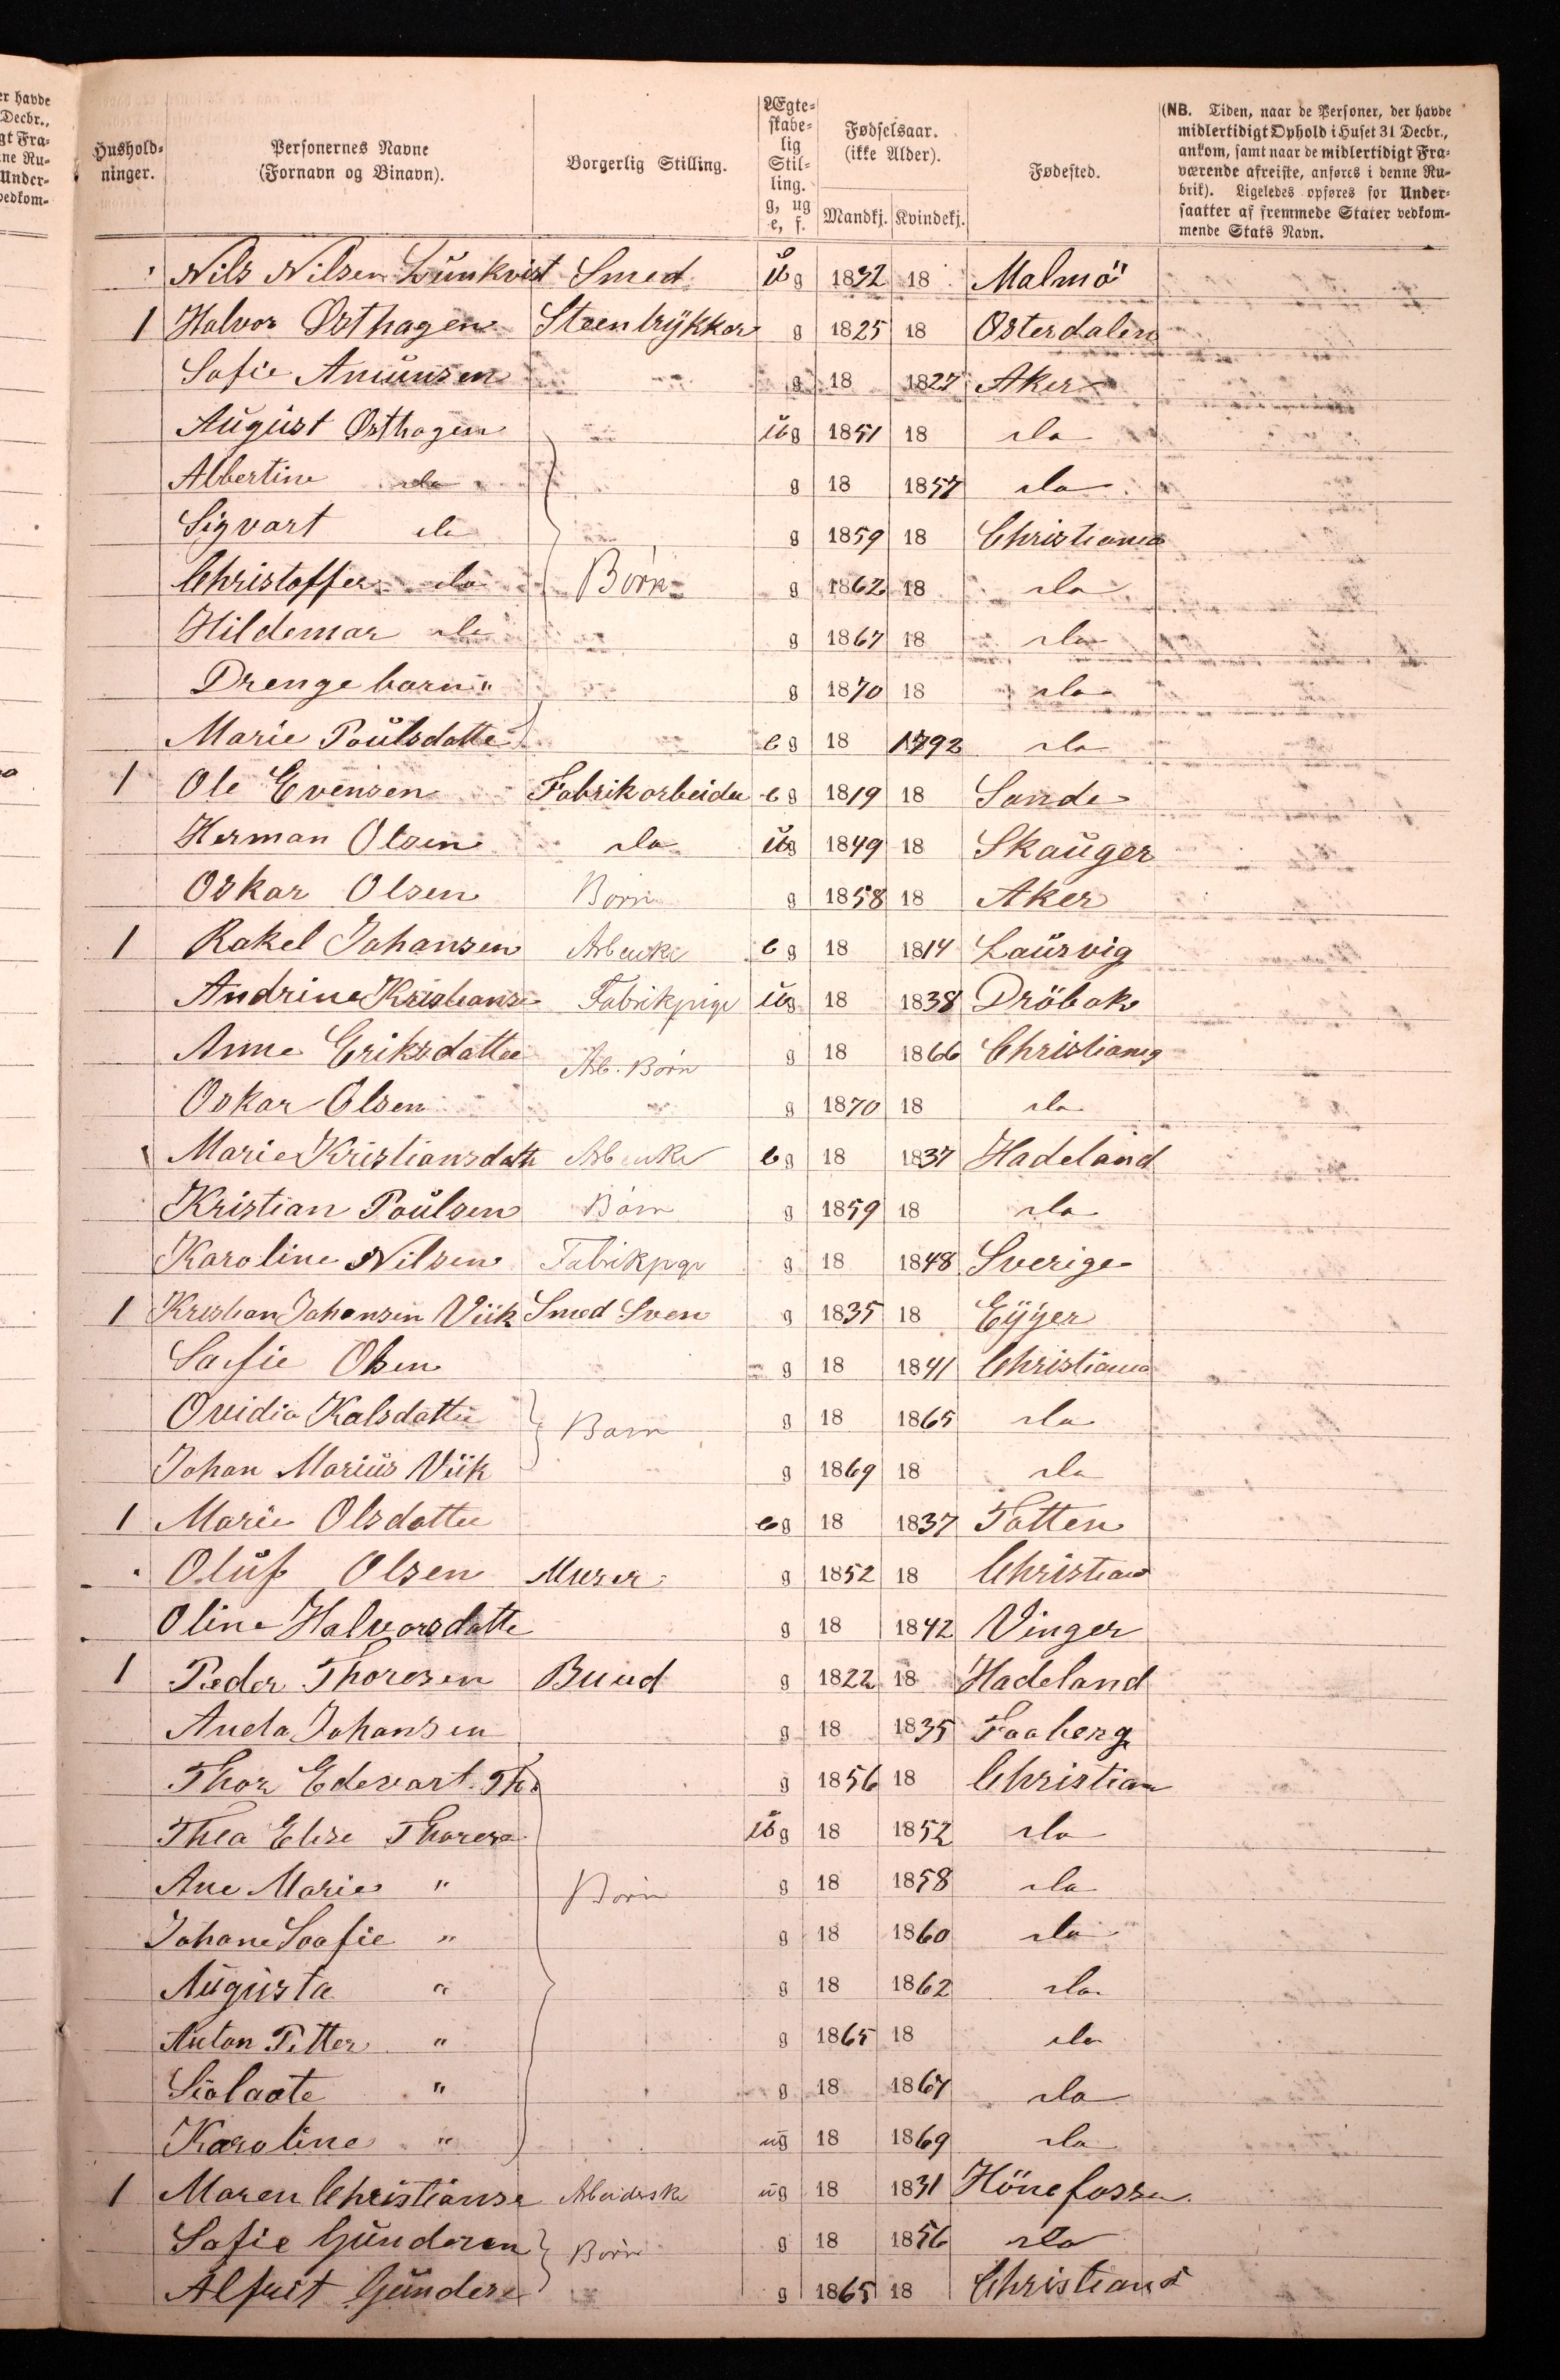 er havde
Decbr.,
gt Fra-
ne Ru-
Under-
vedkom-
Hushold-
ninger.
Personernes Navne
(Fornavn og Binavn).
Borgerlig Stilling.
Ægte-
skabe-
lig
Stil-
ling.
g, ug
e, f.
Fødselsaar.
(ikke Alder).
Mandkj. Kvindekj.
Fødested.
(NB. Tiden, naar de Personer, der havde
midlertidigt Ophold i Huset 31 Decbr.,
ankom, samt naar de midlertidigt Fra-
værende afreiste, anføres i denne Ru-
brik). Ligeledes opføres for Under-
saatter af fremmede Stater vedkom-
mende Stats Navn.
Nils Nilsen Lŭnkvist Smed ŭg 1832 18 Malmö
1 Halvor Østhagen Steentrykker g 1825 18 Østerdalen
Sofie Amŭnsen g 18 1827 Aker
Aŭgŭst Østhagen ŭg 1851 18 do
Albertine do g 18 1857 do
Sigvart do g 1859 18 Christiania
Christoffer do Børn g 1862 18 do
Hildemar do g 1867 18 do
Drengebarn " g 1870 18 do
Marie Poŭlsdatte e g 18 1792 do
1 Ole Evensen Fabrikarbeider e g 1819 18 Sande
Herman Olsen do ŭg 1849 18 Skaŭger
Oskar Olsen Børn g 1858 18 Aker
1 Rakel Johansen e g 18 1814 Laŭrvig
Andrine Kristianse Fabrikpige ŭg 18 1838 Dröbak
Anne Eriksdatter Arb. Børn g 18 1866 Christiania
Oskar Olsen g 1870 18 do
Marie Kristiansdatte e g 18 1837 Hadeland
Kristian Poŭlsen Børn g 1859 18 do
Karoline Nilsen Fabrikpge g 18 1848 Sverige
1 Kristian Johansen Viik Smed Sven g 1835 18 Eyger
Safie Olsen g 18 1841 Christiania
Ovidia Kalsdatter Barn g 18 1865 do
Johan Mariŭs Viik g 1869 18 do
1 Marie Olsdatter eg 18 1837 Totten
Olŭf Olsen Murer g 1852 18 Christian
Oline Halvorsdatte g 18 1842 Vinger
1 Peder Thoresen Buud g 1822 18 Hadeland
Johansen g 18 1835 Faaberg
Thor Edevart Th. g 1856 18 Christian
Thea Elise Thorese ŭg 18 1852 do
Ane Marie " Børn g 18 1858 do
Johane Soofie " g 18 1860 do
Aŭgŭsta " g 18 1862 do
Anton Petter " g 1865 18 do
" g 18 1867 do
Karoline " ug 18 1869 do
1 Maren Christianse Arbeiderske ug 18 1831 Hönefosse
Safie Gŭnderen Børn g 18 1856 do
Gŭndere g 1865 18 Christiana